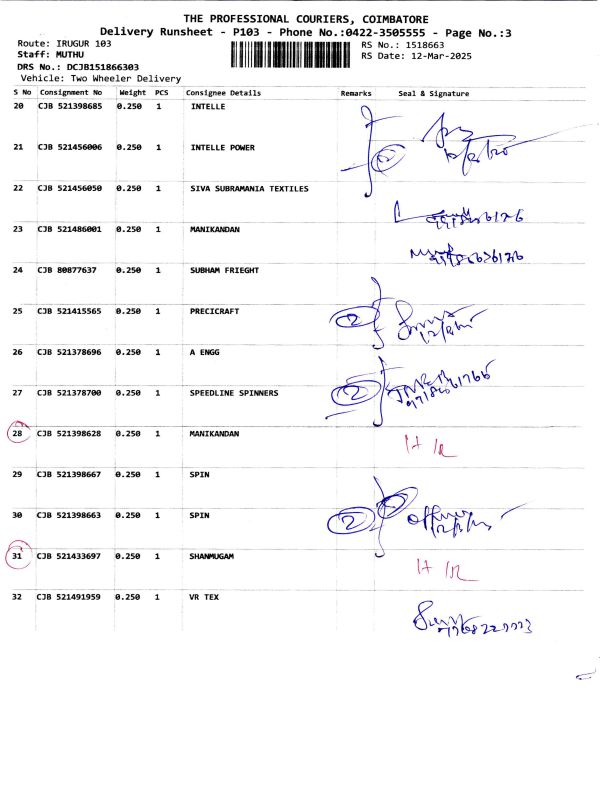 THE PROFESSIONAL COURIERS, COIMBATORE
Delivery Runsheet - P103 - Phone No.:0422-3505555 - Page No.:3
Route: IRUGUR 103 RS No.: 1518663
Staff: MUTHU RS Date: 12-Mar-2025
DRS No.: DCJB151866303
Vehicle: Two Wheeler Delivery
S No Consignment No Weight PCS Consignee Details Remarks Seal & Signature
20 CJB 521398685 0.250 1 INTELLE
21 CJB 521456006 0.250 1 INTELLE POWER
2
22 CJB 521456050 0.250 1 SIVA SUBRAMANIA TEXTILES
23 CJB 521486001 0.250 1 MANIKANDAN
24 CJB 80877637 0.250 1 SUBHAM FRIEGHT
25 CJB 521415565 0.250 1 PRECICRAFT 2
26 CJB 521378696 0.250 1 A ENGG
27 CJB 521378700 0.250 1 SPEEDLINE SPINNERS 2
28 CJB 521398628 0.250 1 MANIKANDAN
29 CJB 521398667 0.250 1 SPIN
30 CJB 521398663 0.250 1 SPIN 2
31 CJB 521433697 0.250 1 SHANMUGAM
32 CJB 521491959 0.250 1 VR TEX